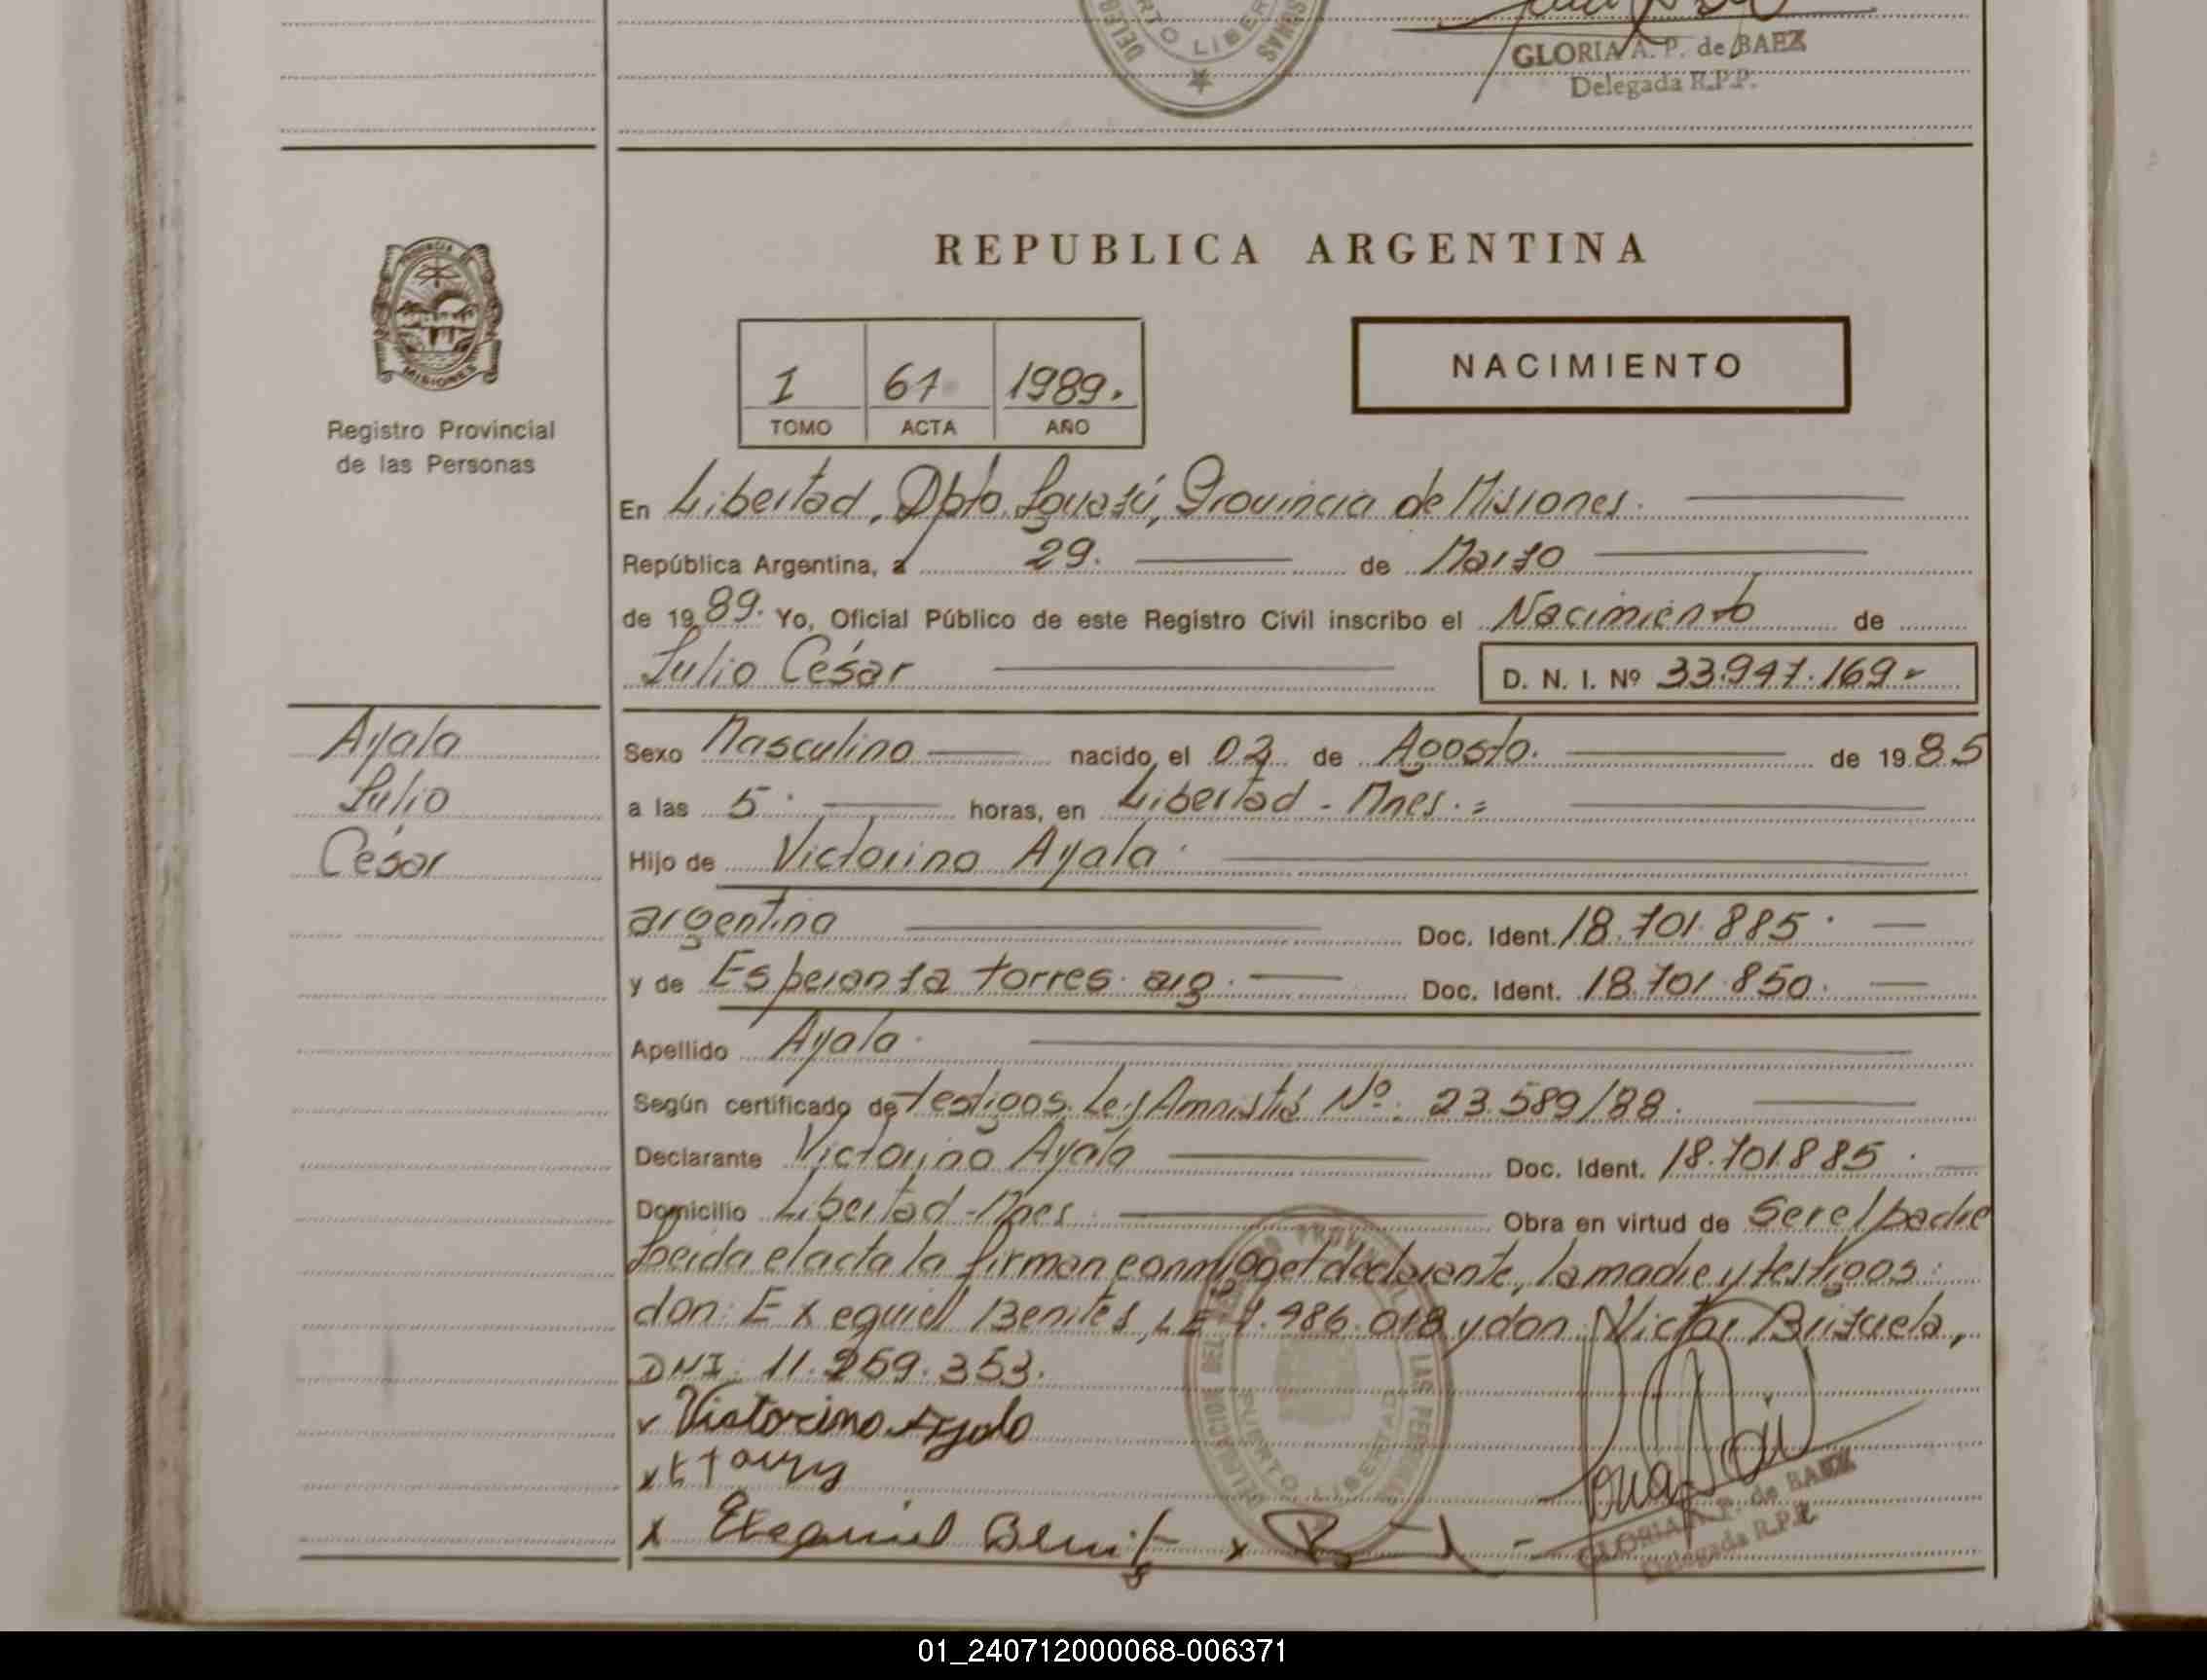 DELEG
RTO LIBER
GLORIA A. P. de BAEZ
Delegada R.P.P.
PROVINCIA
MISIONES
Registro Provincial
de las Personas
REPUBLICA ARGENTINA
1 61 1989.
TOMO ACTA AÑO
NACIMIENTO
En Libertad, Dpto. Iguazú, Provincia de Misiones.
República Argentina, a 29. de Marzo
de 1989. Yo, Oficial Público de este Registro Civil inscribo el Nacimiento de
Julio César D. N. I. Nº 33.947.169.-
Ayala
Julio
César
Sexo Masculino nacido el 02 de Agosto. de 1985
a las 5. horas, en Libertad - Mnes.=
Hijo de Victorino Ayala.
argentino Doc. Ident. 18.701.885.
y de Esperanza Torres. arg. Doc. Ident. 18.701.850.
Apellido Ayala.
Según certificado de testigos. Ley Amnistía Nº. 23.589/88.
Declarante Victorino Ayala Doc. Ident. 18.701.885.
Domicilio Libertad - Mnes. Obra en virtud de Ser el padre
Leida el acta la firman conmigo el declarante, la madre y testigos:
don: Exequiel Benites, LE 7.486.018 y don: Victor Brizuela,
DNI: 11.259.353.
x Victorino Ayala
x E Torres
x Exequiel Benites x
DELEGACION DEL REGISTRO PROVINCIAL DE LAS PERSONAS
PUERTO LIBERTAD
GLORIA A. P. de BAEZ
Delegada R.P.P.
01_240712000068-006371